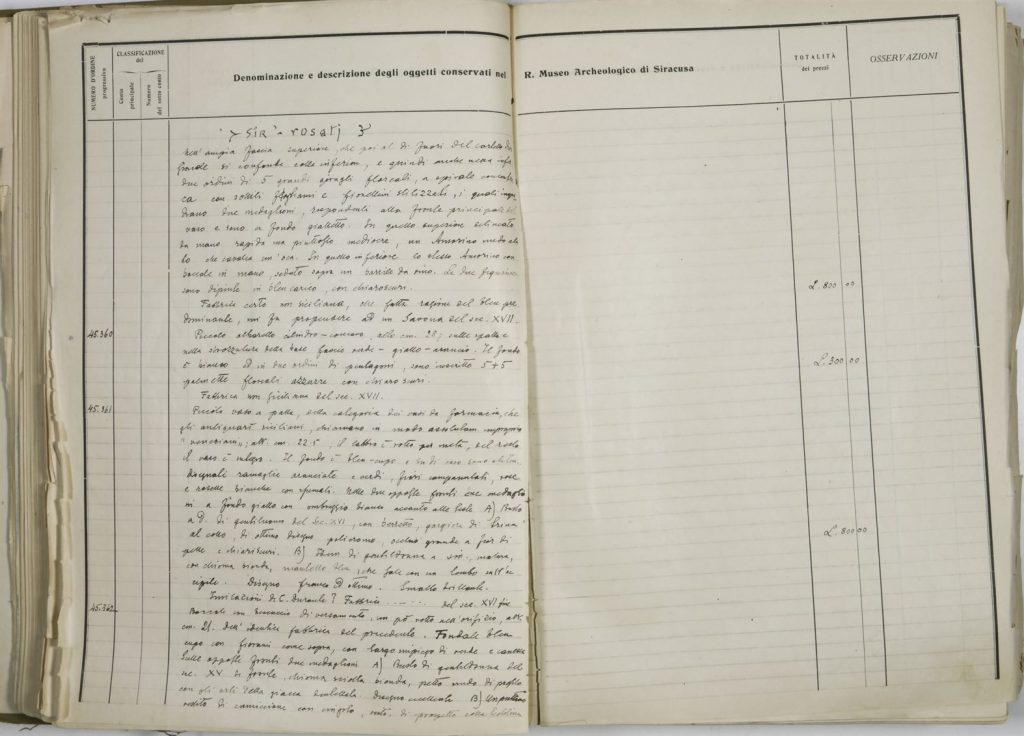 NUMERO D'ORDINE progressivo
CLASSIFICAZIONE del
Conto principale
Numero del sotto conto
Denominazione e descrizione degli oggetti conservati nel R. Museo Archeologico di Siracusa
TOTALITÀ dei prezzi
OSSERVAZIONI
SIR rosarj
nell'ampia fascia superiore, che poi al di fuori del
si confonde colle inferiori, e quindi anche
due ordini di 5 grandi floreali, a spirale
ca con sottili e fiorellini stilizzati, i quali
drano due medaglioni, rispondenti alla fronte principale del
vaso e sono a fondo gialletto. In quello superiore delineato
da mano rapida ma piuttosto mediocre, un Amorino
to che cavalca un'oca. In quello inferiore lo stesso Amorino con
in mano, seduto sopra un barile da vino. Le due figurine
sono dipinte in bleu carico, con chiaroscuri.
L. 800 00
Fabbrica certo non siciliana, che fatta ragione del bleu pre
dominante, mi fa propendere ad un Savona del sec. XVII.
45.360
Piccolo albarello cilindro-concavo, alto cm. 28; sulle spalle e
nella strozzatura della base fascie verde - giallo - arancio. Il fondo
è bianco ed in due ordini di pentagoni, sono inscritte 5+5
palmette floreali azzurre con chiaroscuri.
L. 300 00
Fabbrica non siciliana del sec. XVII.
45.361
Piccolo vaso a palla, della categoria dei vasi da farmacia, che
gli antiquari siciliani, chiamano in modo assolutam. improprio
"veneziani"; alt. cm. 22.5; il labbro è rotto per metà, del resto
il vaso è integro. Il fondo è bleu-cupo e su di esso sono
ramaglie aranciate e verdi, fiori campanulati, rose
e rosette bianche con sfumati. Nelle due opposte fronti due medaglio
ni a fondo giallo con ombreggio bianco accanto alle teste A) Busto
a D. di gentiluomo del sec. XVI, con berretto, gorgiera di "trina"
al collo, di ottimo disegno policromo, occhio grande a fior di
pelle e chiariscuri. B) Idem di gentildonna a sin., matura,
con chioma bionda, mantello bleu, che sale con un lembo sull'oc
cipite. Disegno franco ed ottimo. Smalto brillante.
L. 800 00
Imitazioni di C. Durante? Fabbrica ....... del sec. XVI fine
45.362
Boccale con beccuccio di versamento, un pò rotto nell'orifizio, alt.
cm. 21. Dell'identica fabbrica del precedente. Fondale bleu
cupo con fiorami come sopra, con largo impiego di verde e
Sulle opposte fronti due medaglioni A) Busto di gentildonna del
sec. XV di fronte, chioma sciolta bionda, petto nudo di
con gli orli della giacca Disegno eccellente B) Un puttino
vestito di camicione con cingolo, di prospetto colla